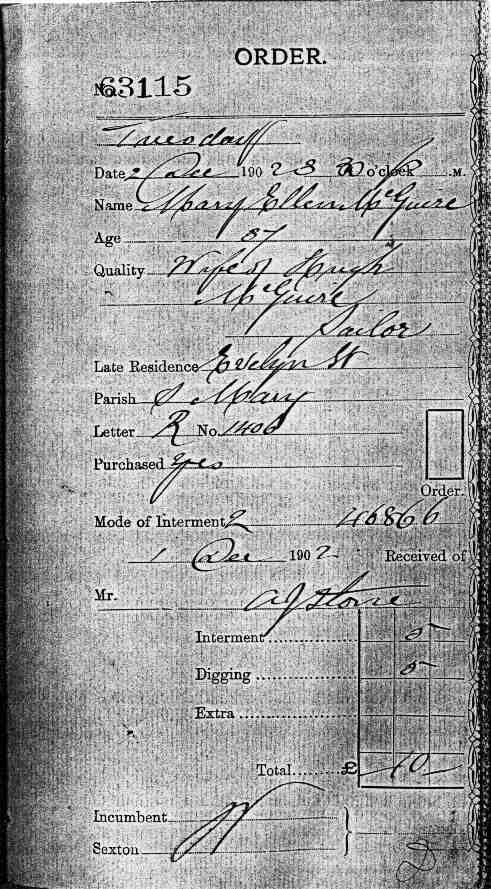 ORDER.
No. 63115
Tuesday
Date 2 Dec 1902 3 30 o'clock P M.
Name Mary Ellen McGuire
Age 37
Quality Wife of Hugh
McGuire
Sailor
Late Residence Evelyn St
Parish S Mary
Letter R No. 1406
Purchased yes
Order.
Mode of Interment 2 46866
1 Dec 1902 Received of
Mr. A J Stone
Interment 5
Digging 5
Extra
Total £ 10
Incumbent
Sexton